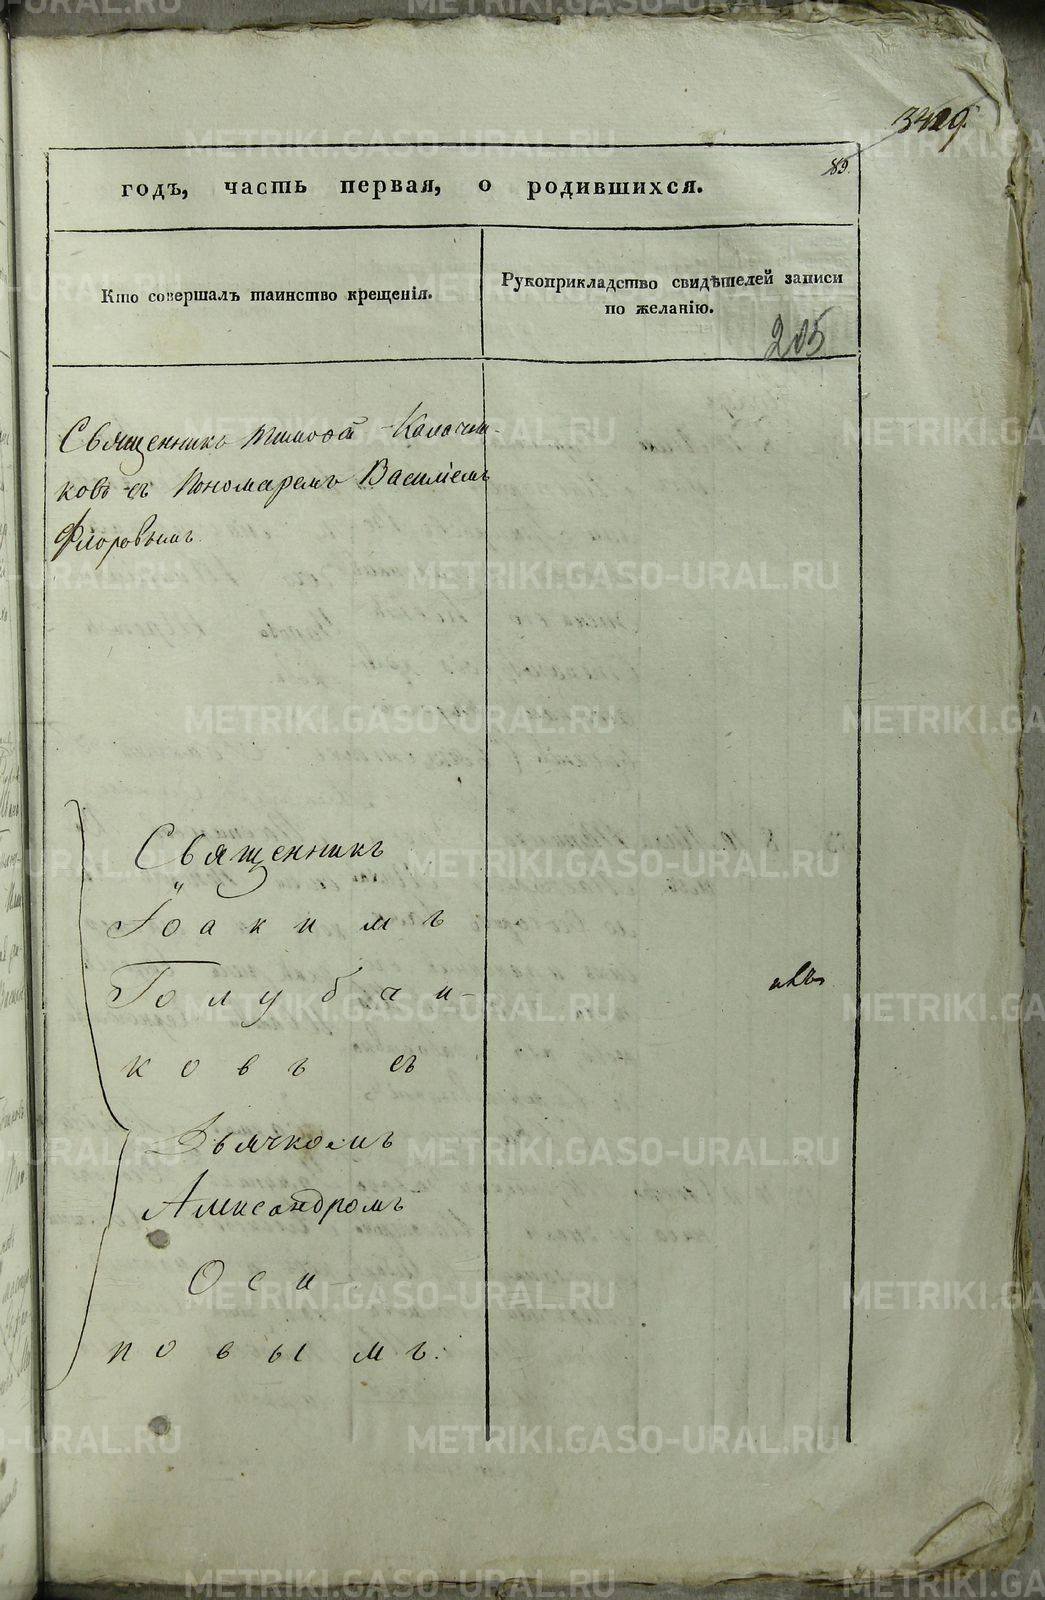 3429.
89.
годъ, часть первая, о родившихся.
Кто совершалъ таинство крещенія.
Рукоприкладство свидѣтелей записи
по желанію.
205
Священникъ Тимофей Калачни-
ковъ съ Пономаремъ Василіемъ
Флоровымъ.
Священникъ
Іоакимъ
Голубчи-
ковъ съ
Дьячкомъ
Александромъ
Оси-
повымъ.
METRIKI.GASO-URAL.RU